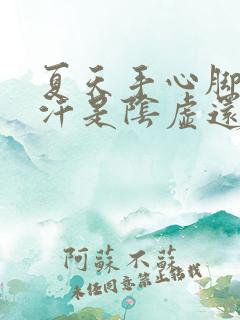 夏天手心脚
汗是陰虛還
阿蘇不蘇
未经同意禁止转载